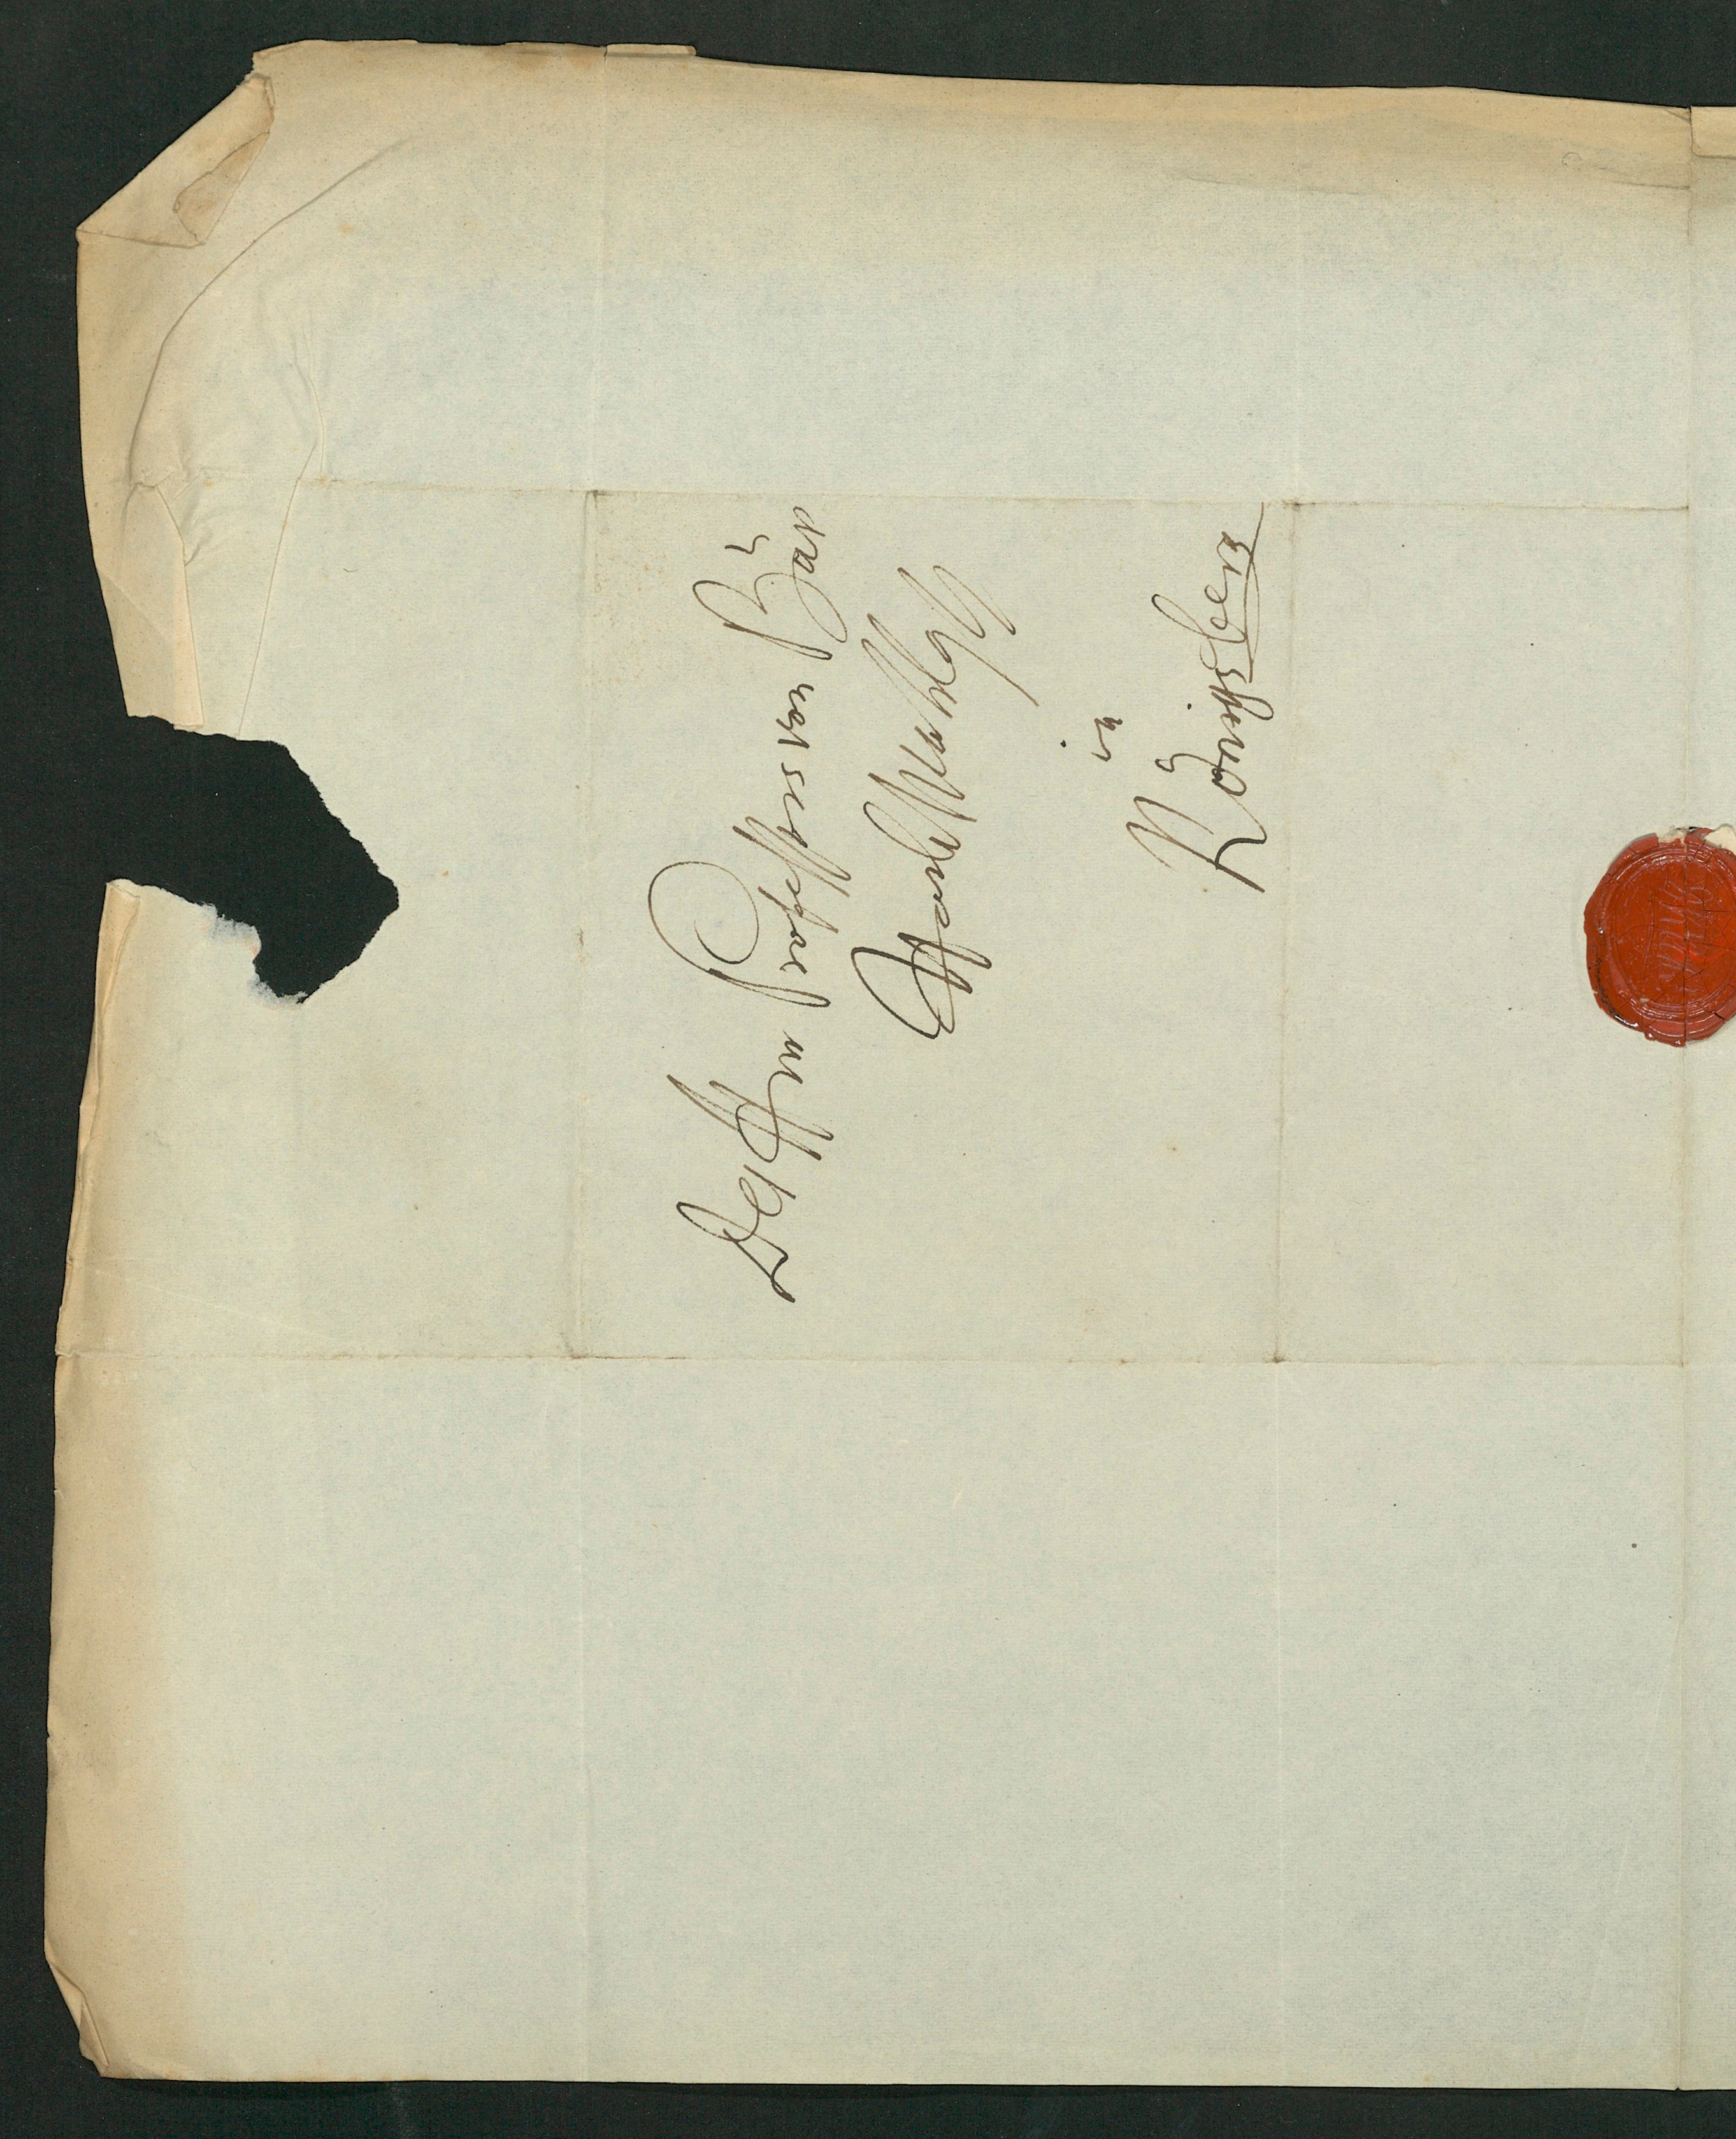 Des Herrn Professors von Bär
Hochwohlgeb
in
Königsberg